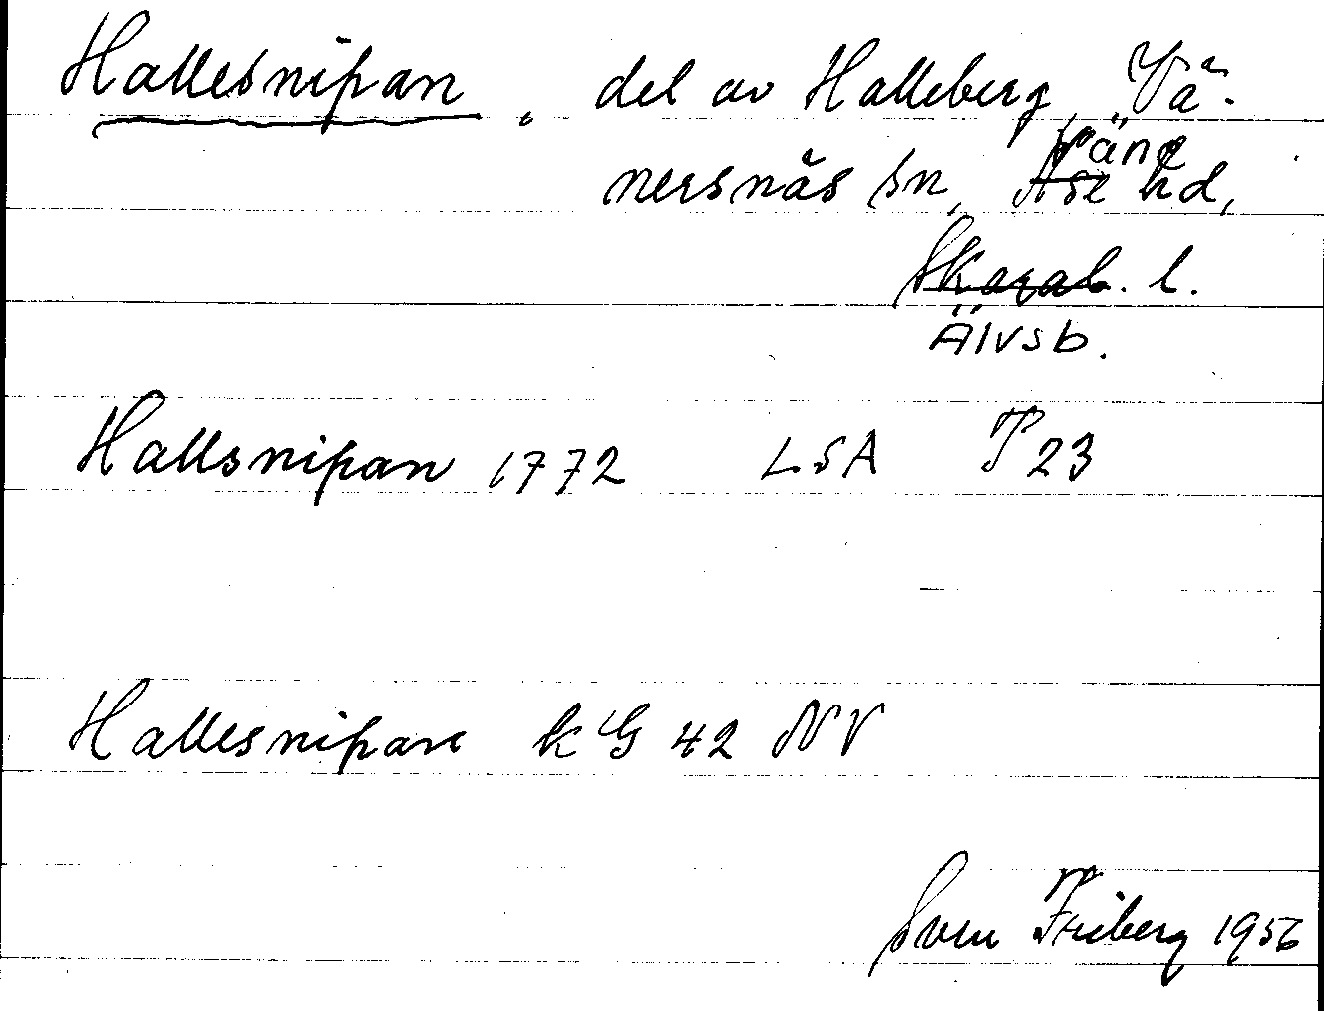 Hallesnipan, del av Halleberg, Vä-
Väne
nersnäs sn, Åse hd,
Skarab. l.
Älvsb.
Hallsnipan 1772 LSA P 23
Hallesnipan kG 42 NV
Sven Friberg 1956